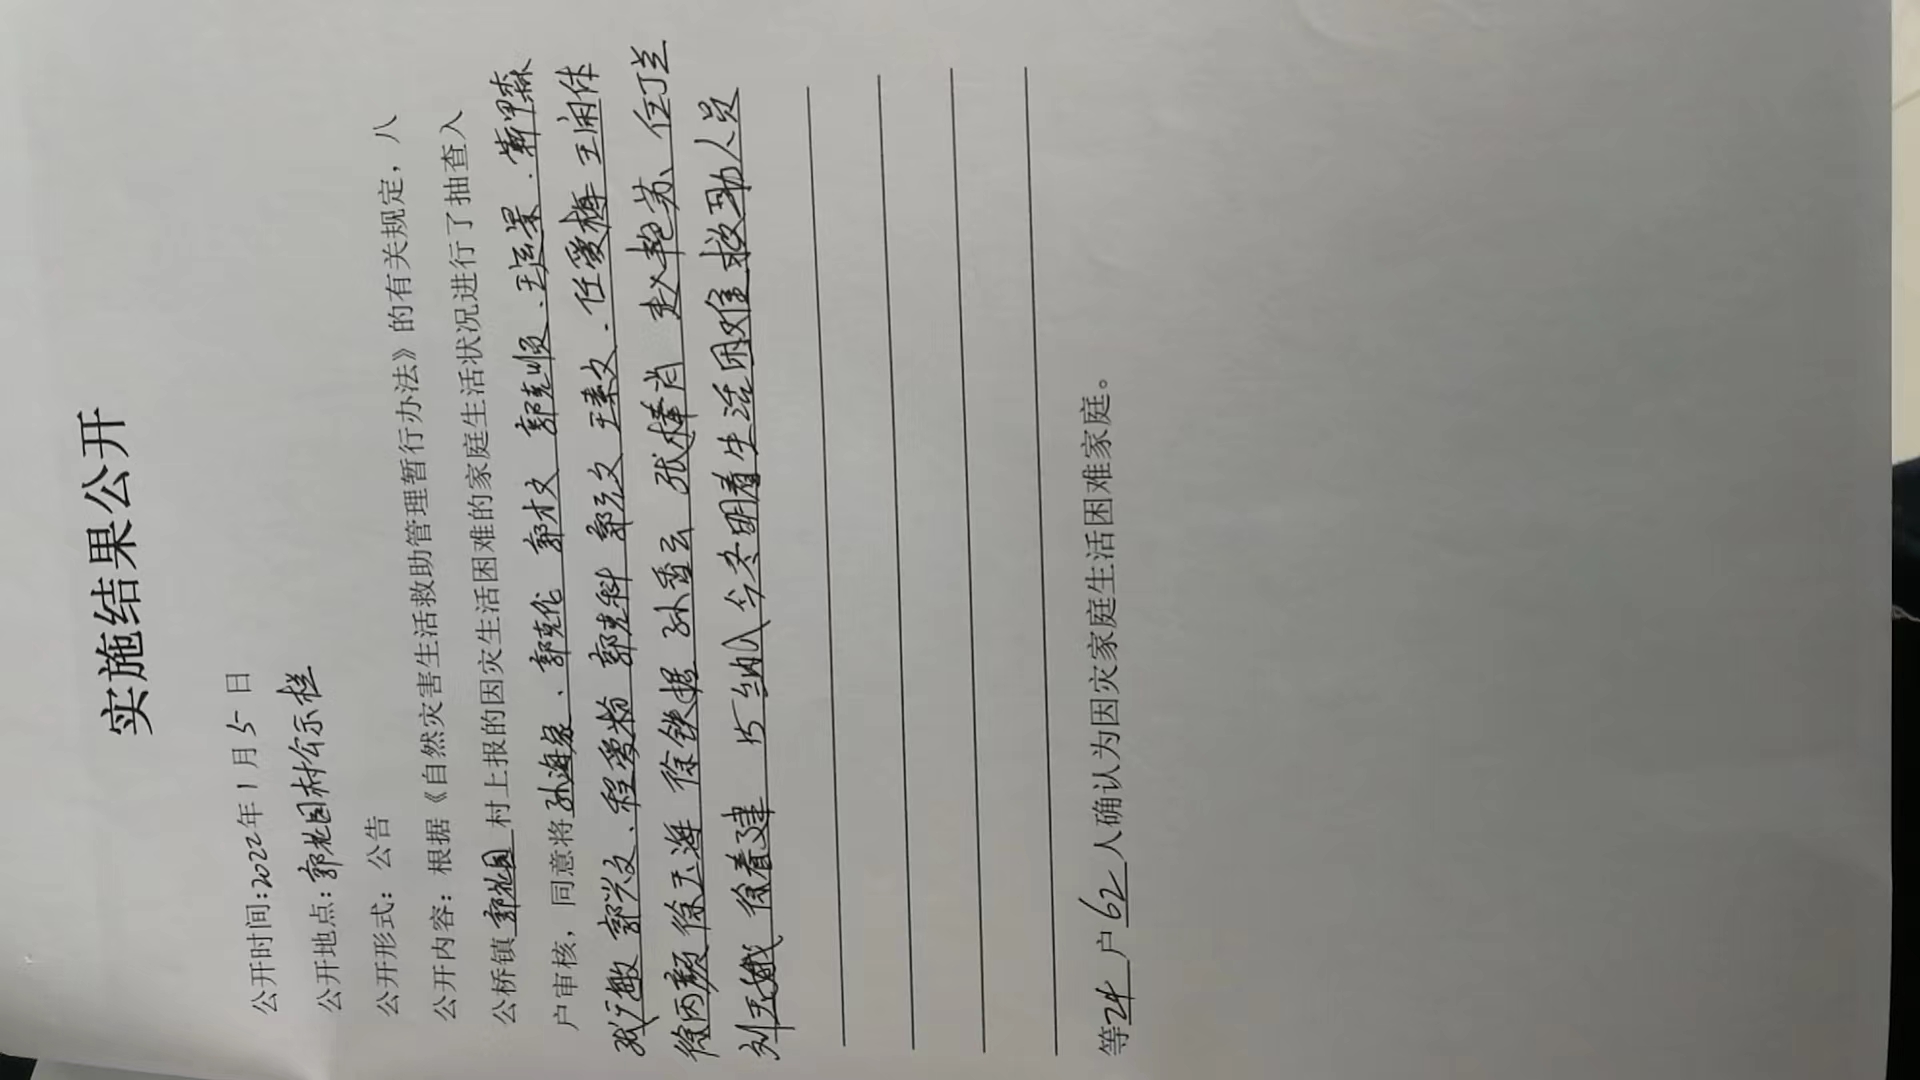 实施结果公开
公开时间:2022年1月5日
公开地点:郭花园村公示栏
公开形式:公告
公开内容:根据《自然灾害生活救助管理暂行办法》的有关规定,八
公桥镇郭花园村上报的因灾生活困难的家庭生活状况进行了抽查入
户审核,同意将孙海泉、郭克伦 郭才文 郭克顺、王运景、
郭兴文、程爱粉 郭克科 郭 文 王素文、任爱梅 王闲休
徐丙颜 徐玉海 徐铁据 孙香云 张 肖 赵艳苏、位丁兰
刘玉娥 徐春建 巧纳入今冬明春生活困难救助人员
等24户62人确认为因灾家庭生活困难家庭。